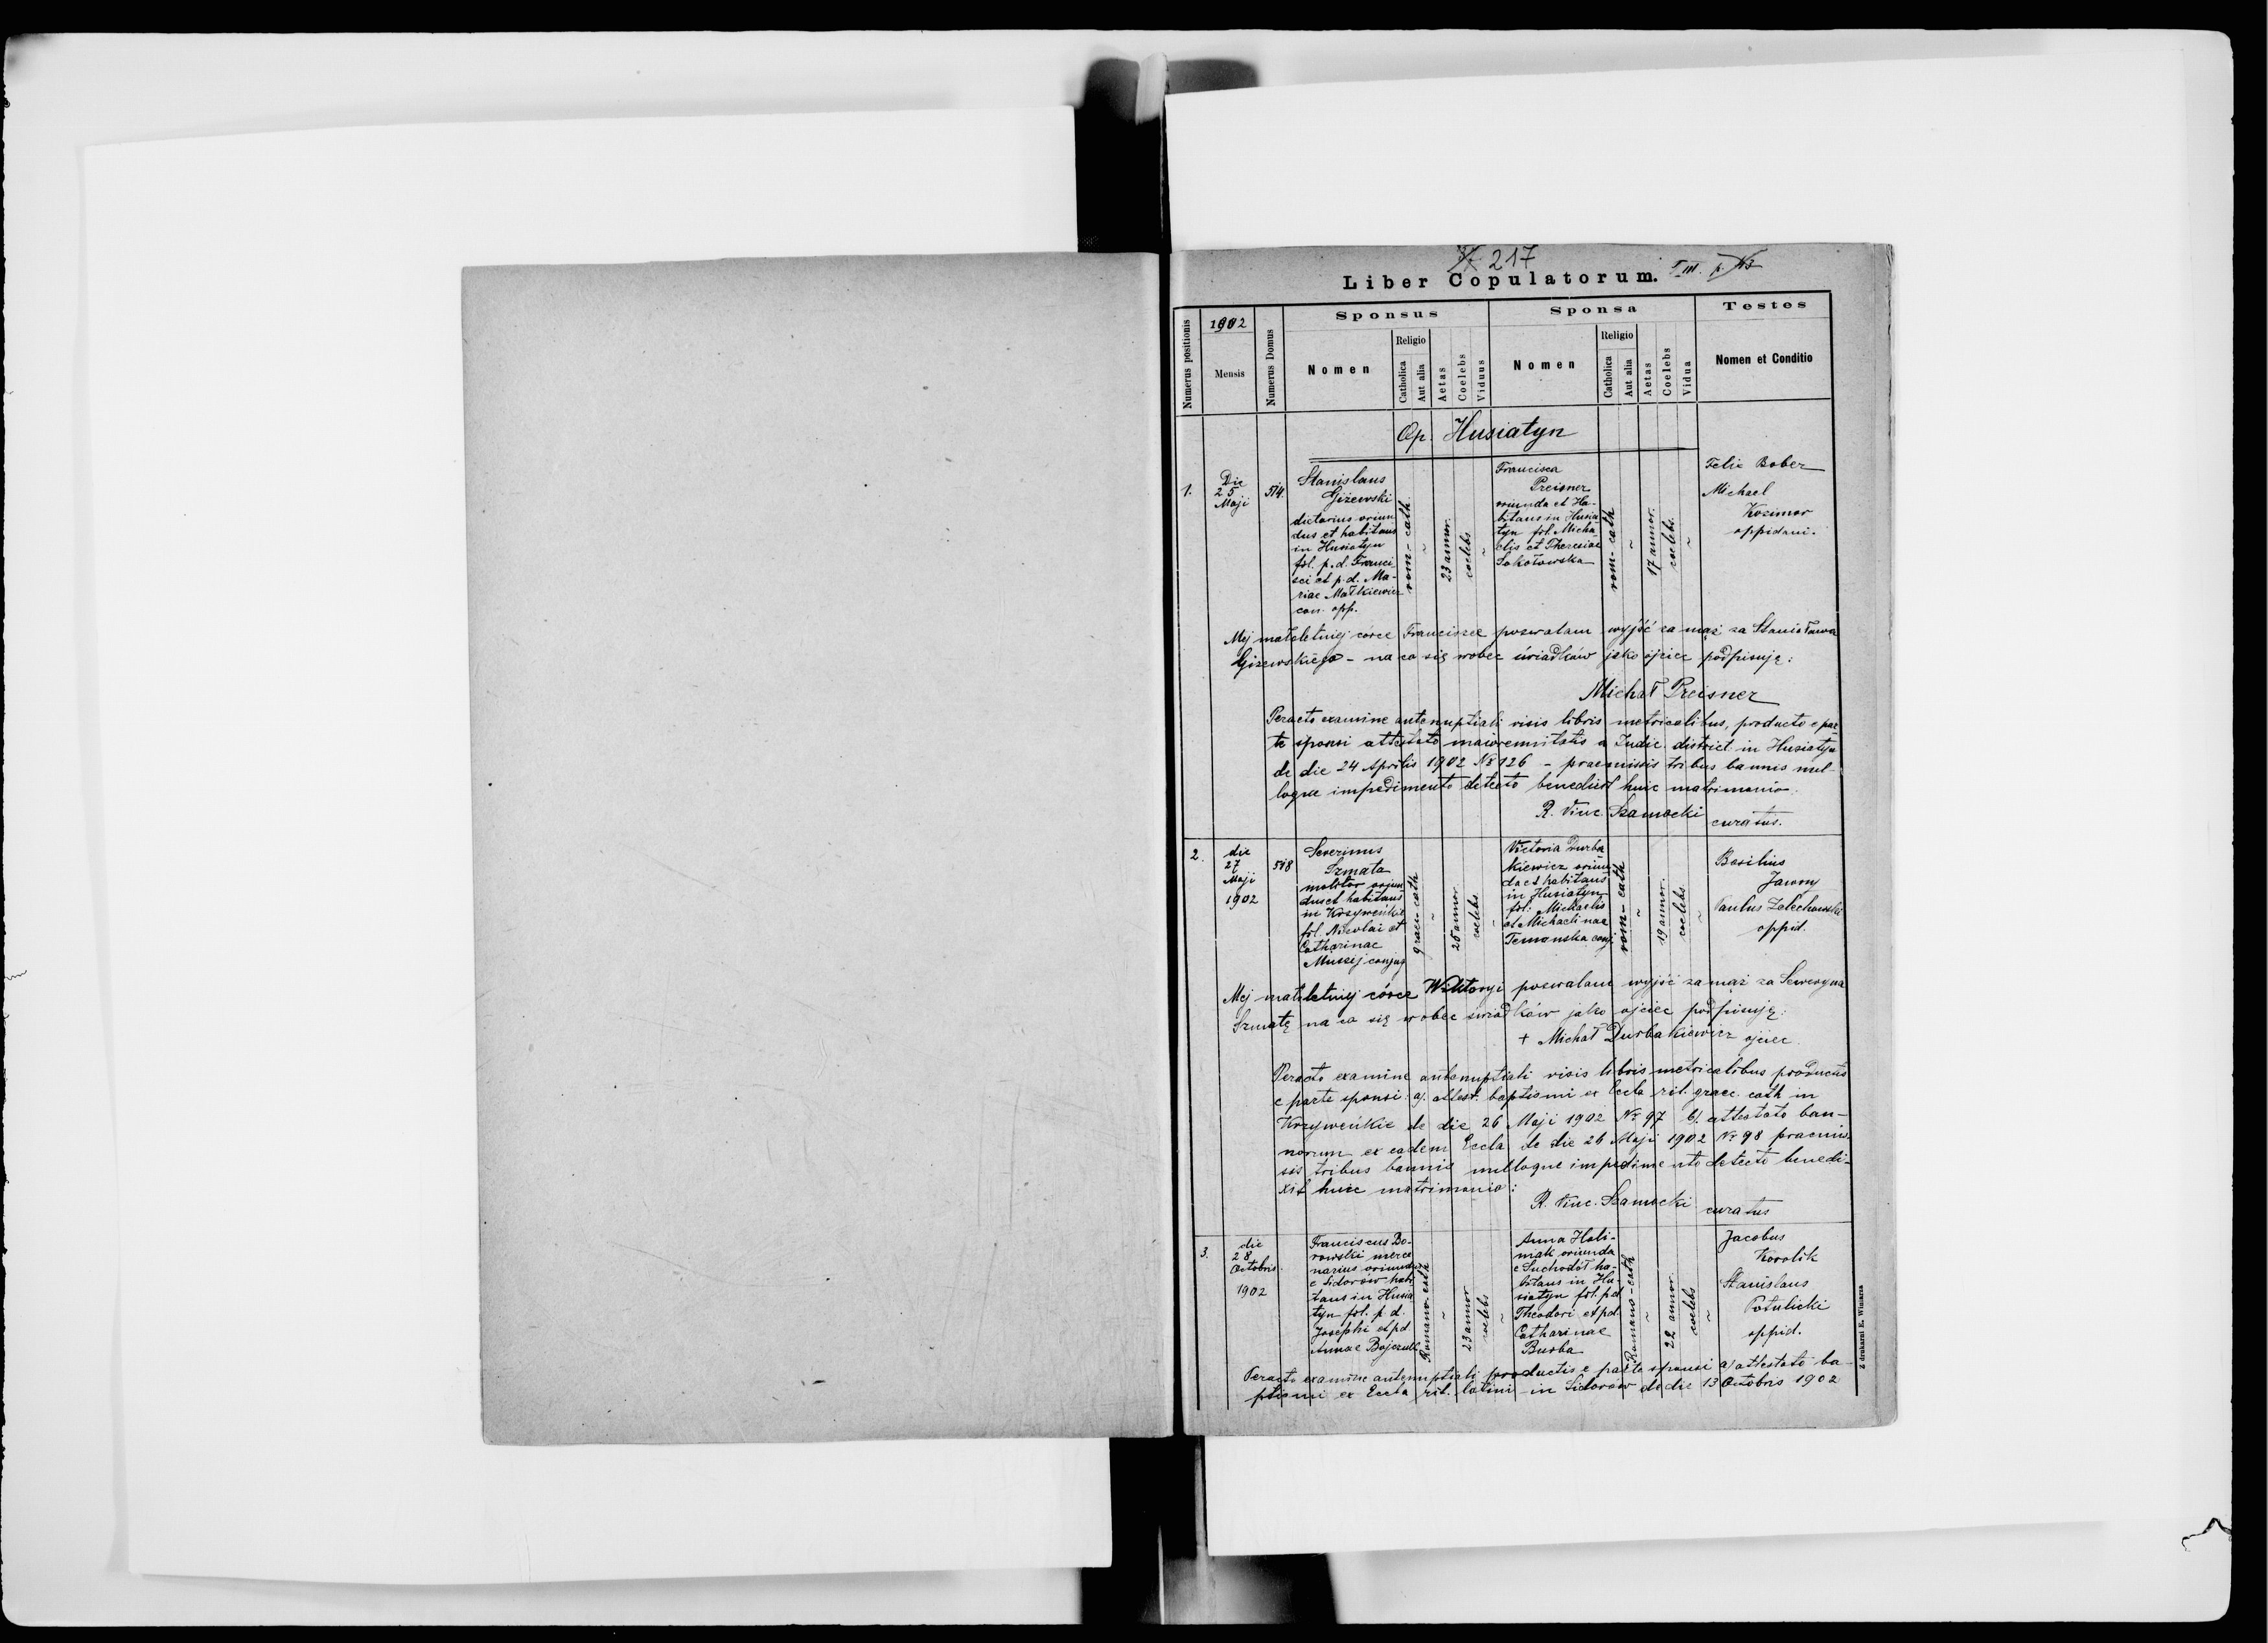 217
Liber Copulatorum. T III. p.
Numerus positionis
1902
Mensis
Numerus Domus
Sponsus
Nomen
Religio
Catholica
Aut alia
Aetas
Coelebs
Viduus
Sponsa
Nomen
Religio
Catholica
Aut alia
Aetas
Coelebs
Vidua
Testes
Nomen et Conditio
Op. Husiatyn
1.
Die
25
Maji
514.
Stanislaus
Giżewski
dietarius oriun
dus et habitans
in Husiatyn
fil. p.d. Franci
sci et p.d. Ma-
riae Małkiewicz
con. opp.
rom-cath
23 annor.
coelebs
Francisca
Preisner
oriunda et Ha-
bitans in Husia-
tyn fil. Micha
elis et Theresiae
Sokołowska
rom-cath
17 annor.
coelebs.
Felix Bober
Michael
Kozimor
oppidani.
Mej małoletniej córce Franciszce pozwalam wyjść za mąż za Stanisława
Giżewskiego - na co się wobec świadków jako ojciec podpisuję:
Michał Preisner
Peracto examine antenuptiali visis libris metricalibus, producto e par
te sponsi attestato maiorennitatis a Judic. district. in Husiatyn
de die 24 Aprilis 1902 № 126 - praemissis tribus bannis nul-
loque impedimento detecto benedixit huic matrimonio:
R. Vinc. Szamocki
curatus.
2.
die
27
Maji
1902
518
Severinus
Szmata
molitor oriun
dus et habitans
in Krzyweńkie
fil. Nicolai et
Catharinae
conjug
graec-cath
25 annor.
coelebs
Victoria Durba
kiewicz oriun
da et habitans
in Husiatyn
fil. Michaelis
et Michaelinae
conj
rom-cath
19 annor.
coelebs.
Basilius
Jawny
Paulus Zalechowski
oppid.
Mej małoletniej córce Wiktoryi pozwalam wyjść za mąż za Seweryna
Szmatę na co się wobec świadków jako ojciec podpisuję:
+ Michał Durbakiewicz ojciec
Peracto examine antenuptiali visis libris metricalibus productis
e parte sponsi: a). attest. baptismi ex Eccla rit. graec. cath in
Krzyweńkie de die 26 Maji 1902 № 97 b). attestato ban-
norum ex eadem Eccla de die 26 Maji 1902 № 98 praemis
sis tribus bannis nulloque impedimento detecto benedi-
xit huic matrimonio:
R. Vinc. Szamocki curatus
3.
die
28
Octobris
1902
Franciscus Bo-
rowski merce
narius oriundus
e Sidorów habi
tans in Husia
tyn fil. p.d.
Josephi et p.d
Annae
Romano-cath
23 annor
coelebs
Anna Holi-
mak oriunda
e Suchodół ha-
bitans in Hu-
siatyn fil. p.d
Theodori et p.d.
Catharinae
Burba
Romano-cath
22 annor.
coelebs
Jacobus
Korolik
Stanislaus
Potulicki
oppid.
Peracto examine antenuptiali productis e parte sponsi a) attestato ba-
ptismi ex Eccla rit. latini in Sidorów de die 13 Octobris 1902
Z drukarni E. Winiarza